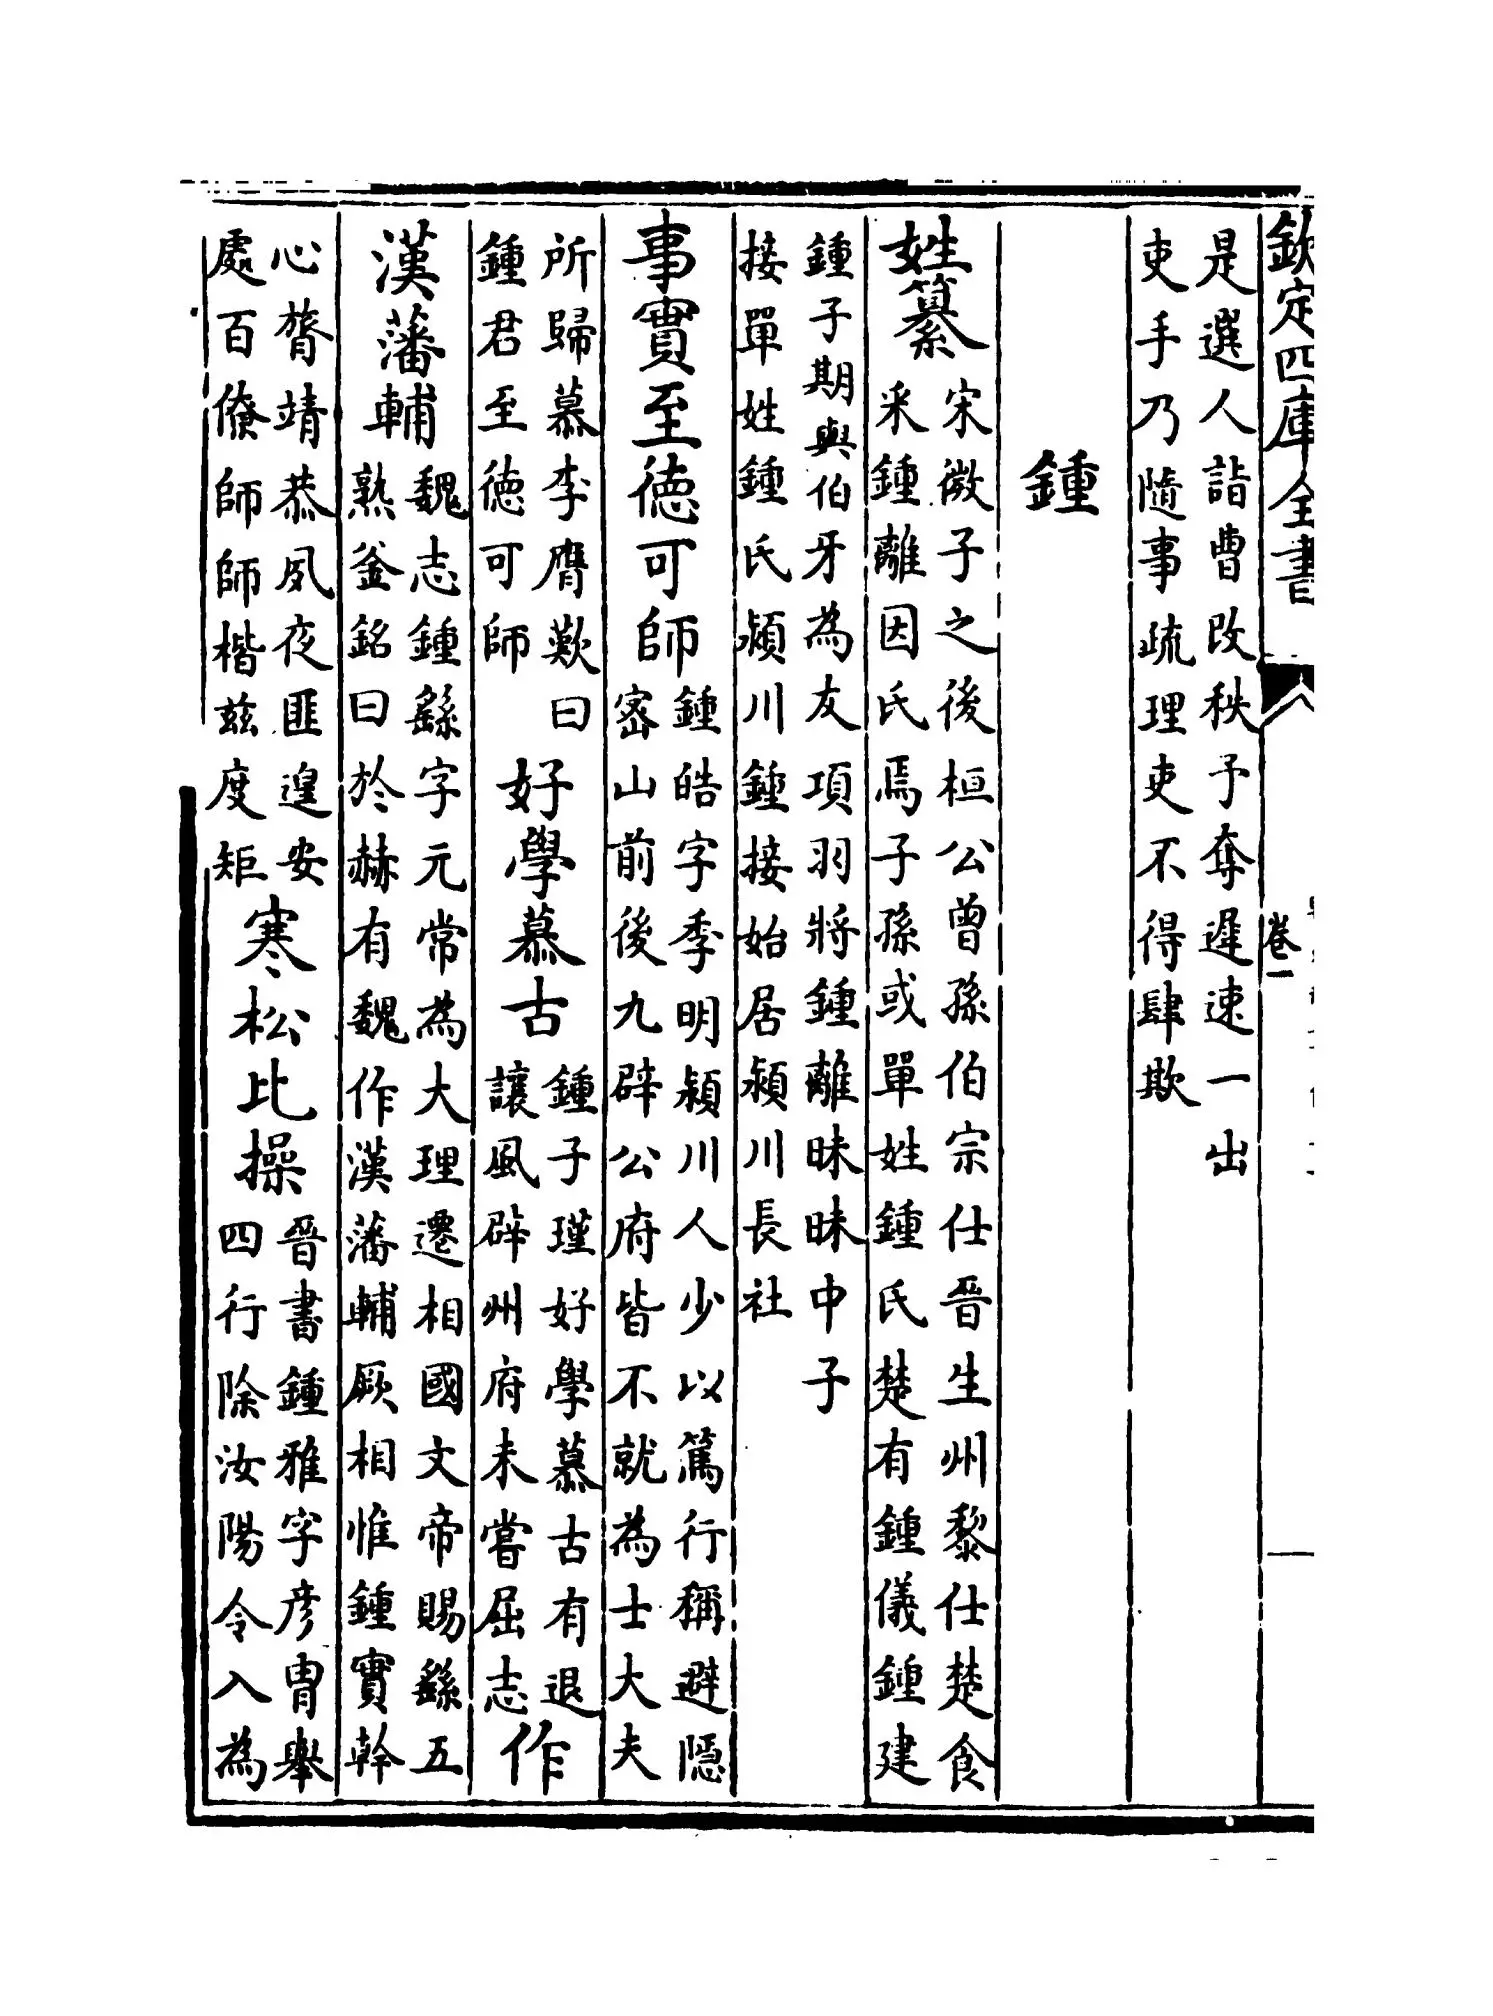 欽定四庫全書
卷一
是選人詣曹改秩予奪遲速一出
吏手乃隨事疏理吏不得肆欺
鍾
姓纂
宋微子之後桓公曾孫伯宗仕晉生州黎仕楚食
采鍾離因氏焉子孫或單姓鍾氏楚有鍾儀鍾建
鍾子期與伯牙為友項羽將鍾離昧昧中子
接單姓鍾氏潁川鍾接始居潁川長社
事實至德可師
鍾皓字季明潁川人少以篤行稱避隱
宻山前後九辟公府皆不就為士大夫
所歸慕李膺歎曰
鍾君至德可師
好學慕古
鍾子瑾好學慕古有退
讓風辟州府未嘗屈志
作
漢藩輔
魏志鍾繇字元常為大理遷相國文帝賜繇五
熟釜銘曰於赫有魏作漢藩輔厥相惟鍾實幹
心膂靖恭夙夜匪遑安
處百僚師師楷兹度矩
寒松比操
晉書鍾雅字彦胄舉
四行除汝陽令入為